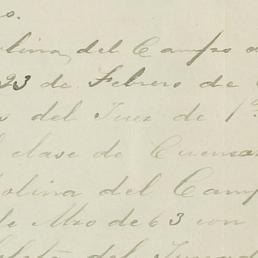 s.
olina, del Campo a
23 de Febrero de
s del Juez de 1ª
l clase de Cuenca
olina del Camp
de Mzo de 63 con
del Juzgad